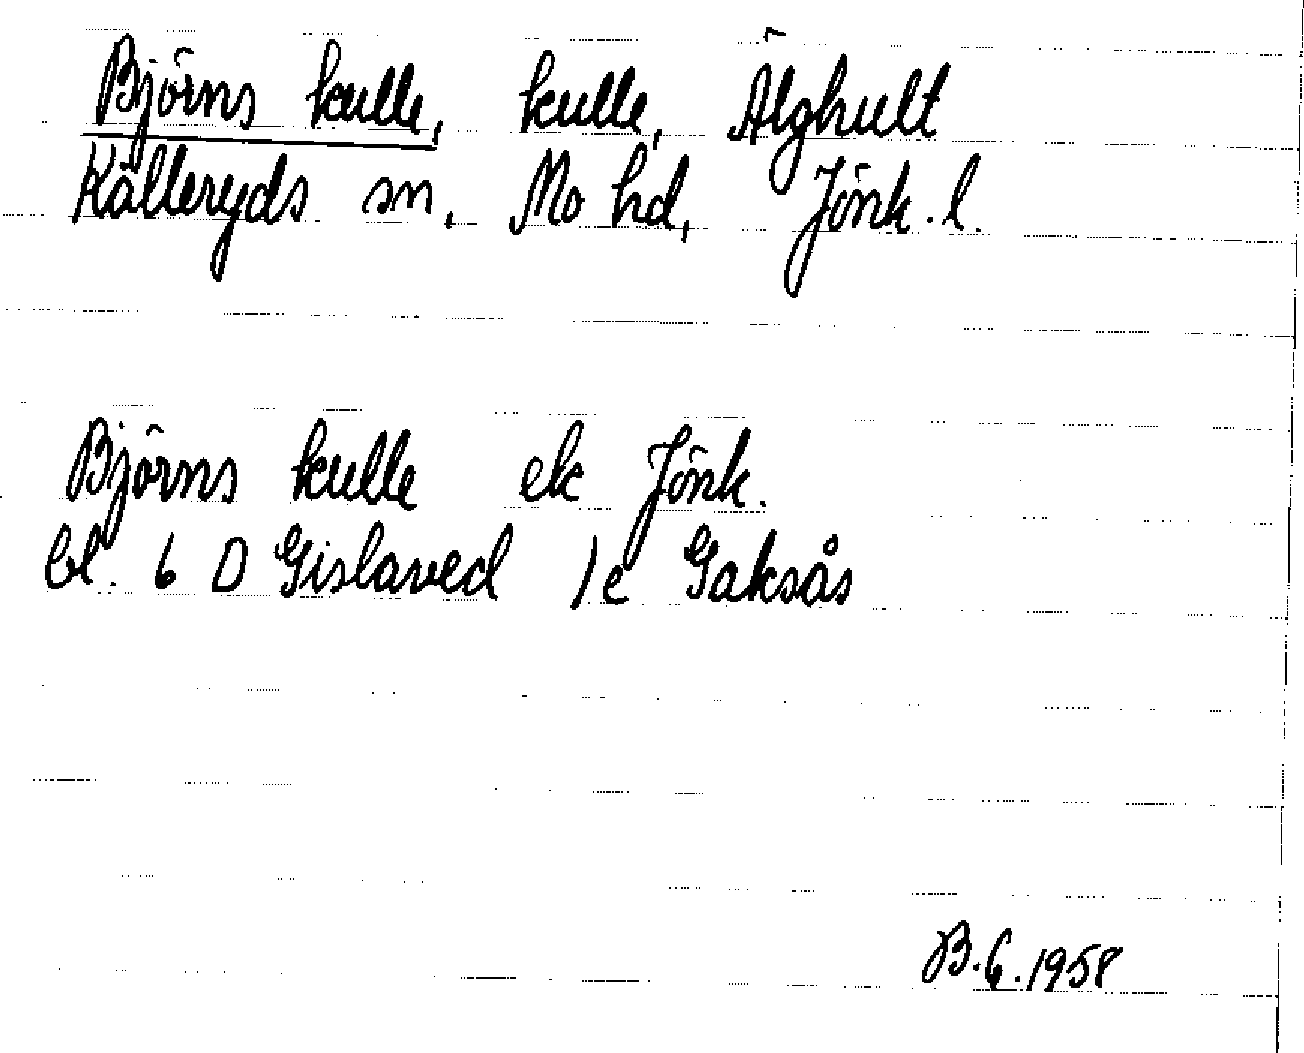 Björns kulle, kulle, Älghult
Kålleryds sn, Mo hd, Jönk. l.
Björns kulle ek Jönk.
bl. 6 D Gislaved 1e Gaksås
B.G. 1958